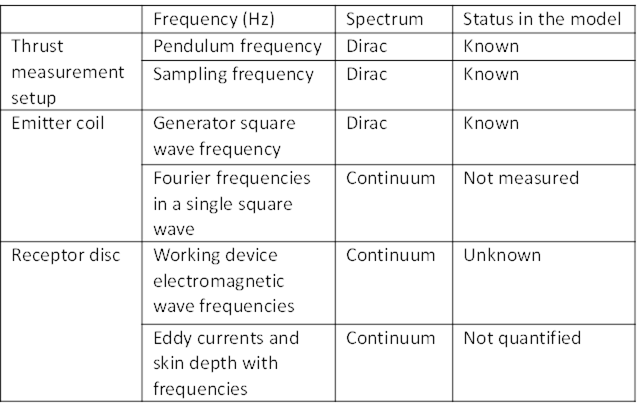 Frequency (Hz) Spectrum Status in the model
Thrust measurement setup Pendulum frequency Dirac Known
Sampling frequency Dirac Known
Emitter coil Generator square wave frequency Dirac Known
Fourier frequencies in a single square wave Continuum Not measured
Receptor disc Working device electromagnetic wave frequencies Continuum Unknown
Eddy currents and skin depth with frequencies Continuum Not quantified